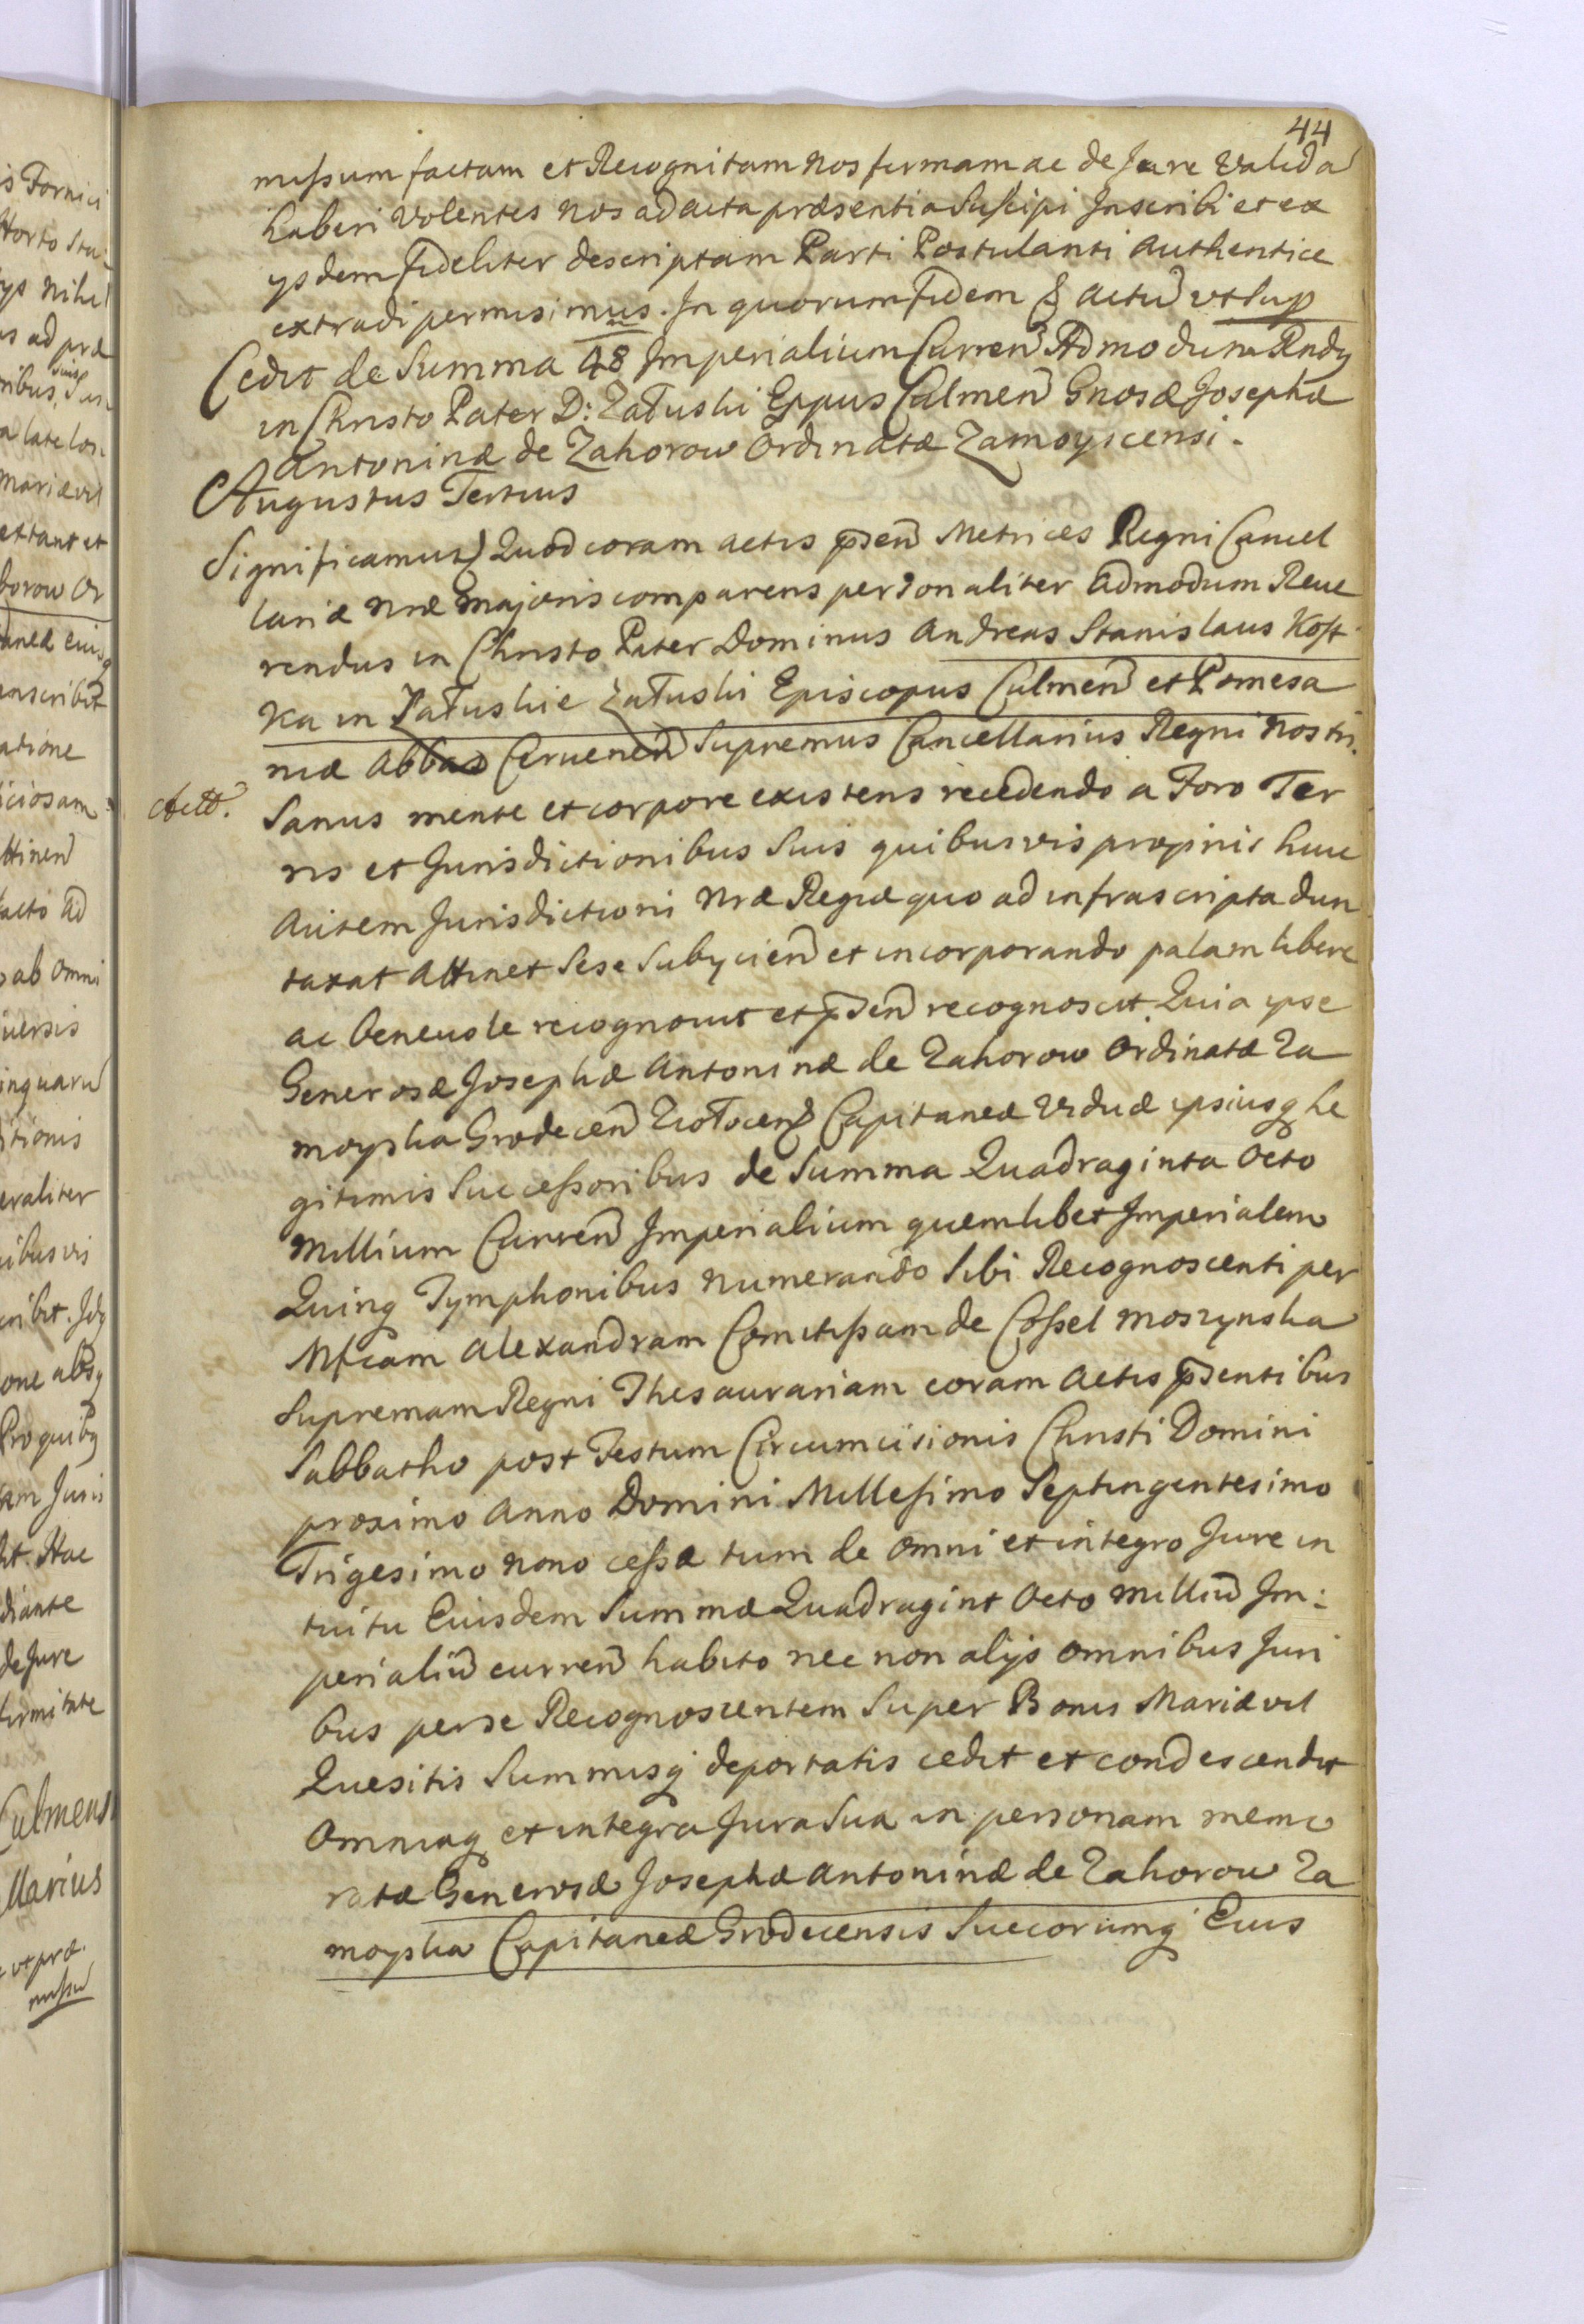 44
missum factam et Recognitam nos firmam ac de Jure Valida
haberi Volentes nos ad acta præsentia Suscipi Inscribi et ex
ysdem fideliter descriptam Parti Postulanti Authentice
extradi permisimus. In quorum fidem & actū ut sup
Cedit de Summa 48 Imperialium Curren Admodum Rndq
in Christo Pater D: Zatuski Eppus Culmen Gnosæ Josephæ
Antoninæ de Zahorow Ordinatæ Zamoyscensi.
Augustus Tertius
Significamus) Quod coram actis psen Metrices Regni Cancel
lariæ Nræ Majoris comparens personaliter Admodum Reve
rendus in Christo Pater Dominus Andreas Stanislaus Kost
ka in Zatuskie Zatuski Episcopus Culmen et Pomesa
niæ Abbas Cervenen Supremus Cancellarius Regni Nostri.
Actt. Sanus mente et corpore existens recedendo a Foro Ter
ris et Jurisdictionibus Suis quibusvis proprijs huic
Autem Jurisdictioni Nræ Regiæ quo ad infrascripta dun
taxat Attinet Sese Subycien et incorporando palam libere
ac benevole recognovit et psen recognoscit Quia ipse
Generosæ Josephæ Antoninæ de Zahorow Ordinatæ Za
moyska Grodecen Ztotocen Capitaneæ Viduæ ipsiusq le
gitimis Successoribus de Summa Quadraginta Octo
Millium Curren Imperialium quemlibet Imperialem
Quinq Tymphonibus numerando Sibi Recognoscenti per
Mfcam Alexandram Comitissam de Cossel Moszynska
Supremam Regni Thesaurariam coram Actis psentibus
Sabbatho post Festum Circumcisionis Christi Domini
proximo Anno Domini Millesimo Septingentesimo
Trigesimo Nono cessæ tum de omni et integro Jure in
tuitu Eiusdem Summæ Quadragint Octo Milliū Im:
perialiū curren habito nec non alijs omnibus Juri
bus per se Recognoscentem Super Bonis Mariævil
Quesitis Summisq deportatis cedit et condescendit
Omniaq et integra Jura Sua in personam memo
ratæ Generosæ Josephæ Antoninæ de Zahorow Za
moyska Capitaneæ Grodecensis Succorumq Eius